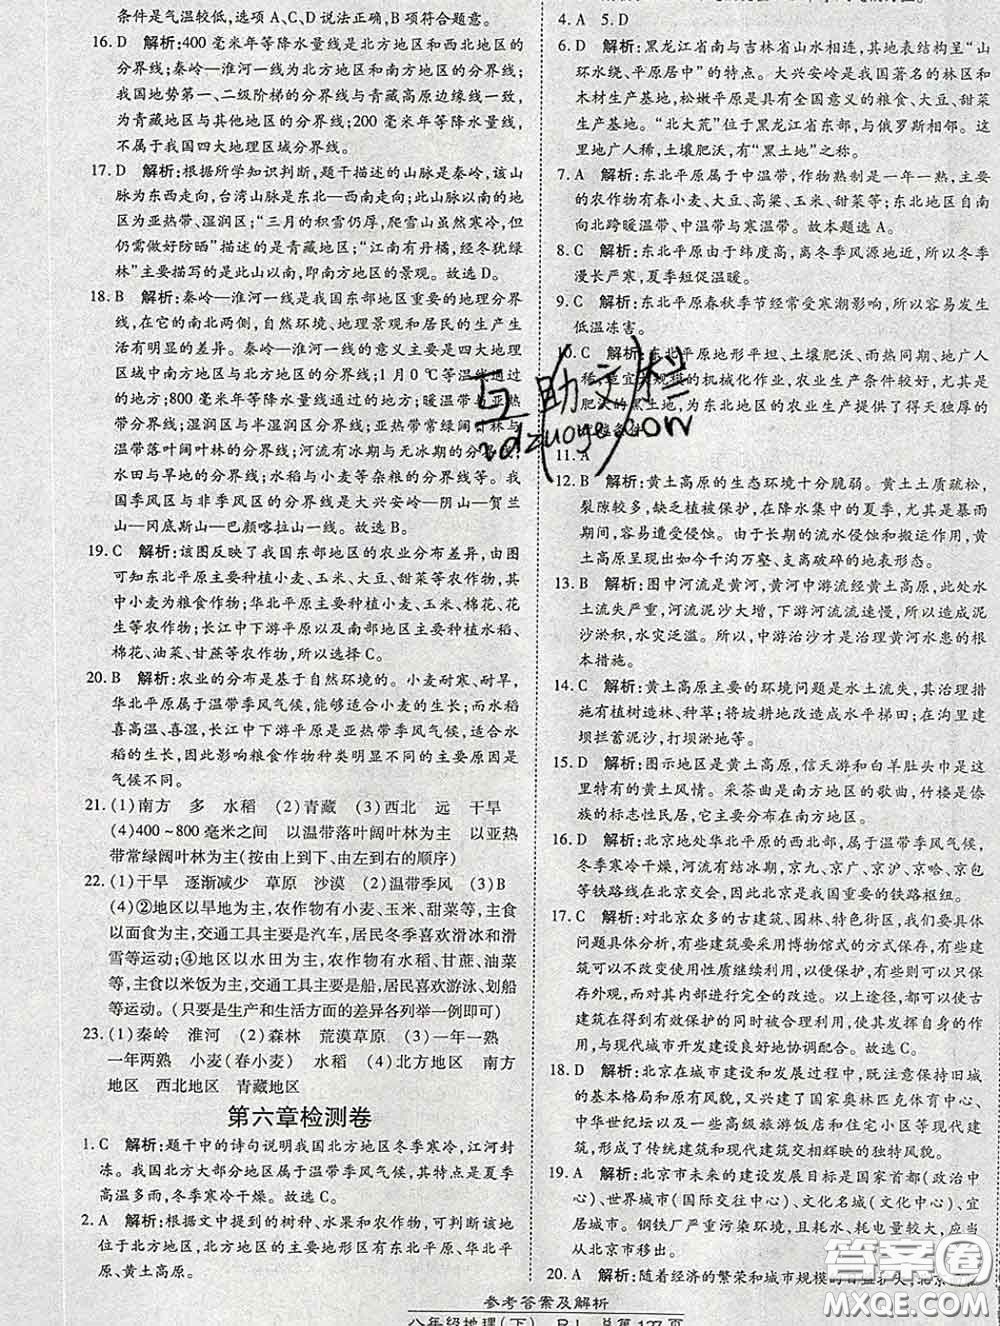 条件是气温较低,选项A、C、D说法正确,B项符合题意。
16. D 解析:400毫米年等降水量线是北方地区和西北地区的
分界线;秦岭—淮河一线为北方地区和南方地区的分界线;
我国地势第一、二级阶梯的分界线与青藏高原边缘线一致,
为青藏地区与其他地区的分界线;200毫米年等降水量线,
不属于我国四大地理区域分界线。
17. D 解析:根据所学知识判断,题干描述的山脉是秦岭,该山
脉为东西走向,台湾山脉是东北—西南走向;此山脉以南的地
区为亚热带、湿润区;“三月的积雪仍厚,爬雪山虽然寒冷,但
仍需做好防晒”描述的是青藏地区;“江南有丹橘,经冬犹绿
林”主要描写的是此山以南,即南方地区的景观。故选D。
18. B 解析:秦岭—淮河一线是我国东部地区重要的地理分界
线,在它的南北两侧,自然环境、地理景观和居民的生产生
活有明显的差异。秦岭—淮河一线的意义主要是四大地理
区域中南方地区与北方地区;1月0℃等温线通过
的地方;800毫米年等降水量线通过的地方;暖温带与亚热
带;湿润区与半湿润区分界线;亚热带常绿阔叶林与
温带落叶阔叶林分界线;河流有冰期与无冰期的分界线;
水田与旱地的分界线;水稻与小麦等杂粮的分界线。我
国季风区与非季风区的分界线是大兴安岭—阴山—贺兰
山—冈底斯山—巴颜喀拉山一线。故选B。
19. C 解析:该图反映了我国东部地区的农业分布差异,由图
可知东北平原主要种植小麦、玉米、大豆、甜菜等农作物,其
中小麦为粮食作物;华北平原主要种植小麦、玉米、棉花、花
生等农作物;长江中下游平原以及南部地区主要种植水稻、
棉花、油菜、甘蔗等农作物,所以选择C。
20. B 解析:农业的分布是基于自然环境的。小麦耐寒、耐旱,
华北地区属于温带季风气候,能够适合小麦的生长;而水稻
喜高温、喜湿,长江中下游平原是亚热带季风气候,适合水
稻的生长,因此影响粮食作物种类明显不同的主要因素是
气候不同。
21. (1)南方 多 水稻 (2)青藏 (3)西北 远 干旱
(4)400~800毫米之间 以温带落叶阔叶林为主 以亚热
带常绿阔叶林为主(按由上到下、由左到右的顺序)
22. (1)干旱 逐渐减少 草原 沙漠 (2)温带季风 (3)B
(4)②地区以旱地为主,农作物有小麦、玉米、甜菜等,主食
以面食为主,交通工具主要是汽车,居民冬季喜欢滑冰和滑
雪等运动;④地区以水田为主,农作物有水稻、甘蔗、油菜
等,主食以米饭为主,交通工具主要是船,居民喜欢游泳、划船
等运动。(只要是生产和生活方面的差异各列举一例即可)
23. (1)秦岭 淮河 (2)森林 荒漠草原 (3)一年一熟
一年两熟 小麦(春小麦) 水稻 (4)北方地区 南方
地区 西北地区 青藏地区
第六章检测卷
1. C 解析:题干中的诗句说明我国北方地区冬季寒冷,江河封
冻。我国北方大部分地区属于温带季风气候,其特点是夏季
高温多雨,冬季寒冷干燥。故选C。
2. A 解析:根据文中提到的树种、水果和农作物,可判断该地
位于北方地区,北方地区的主要地形区有东北平原、华北平
原、黄土高原。
4. A 5. D
6. D 解析:黑龙江省南与吉林省山水相连,其地表结构呈“山
环水绕、平原居中”的特点。大兴安岭是我国著名的林区和
木材生产基地,松嫩平原是具有全国意义的粮食、大豆、甜菜
生产基地。“北大荒”位于黑龙江省东部,与俄罗斯相邻。这
里地广人稀,土壤肥沃,有“黑土地”之称。
7. A 解析:东北平原属于中温带,作物熟制是一年一熟,主要
的农作物有春小麦、大豆、高粱、玉米、甜菜等;东北地区自南
向北跨暖温带、中温带与寒温带。故本题选A。
8. C 解析:东北平原由于纬度高,离冬季风源地近,所以冬季
漫长严寒,夏季短促温暖。
9. C 解析:东北平原春秋季节经常受寒潮影响,所以容易发生
低温冻害。
10. C 解析:东北平原地形平坦、土壤肥沃、雨热同期、地广人
稀,适宜大规模的机械化作业,农业生产条件较好,尤其是
肥沃的黑土地,为东北地区的农业生产提供了得天独厚的
11. A
12. B 解析:黄土高原的生态环境十分脆弱。黄土土质疏松,
裂隙较多,缺乏植被保护,在降水集中的夏季,尤其是暴雨
期间,容易遭受侵蚀。由于长期的流水侵蚀和搬运作用,黄
土高原呈现出如今千沟万壑、支离破碎的地表形态。
13. B 解析:图中河流是黄河,黄河中游流经黄土高原,此处水
土流失严重,河流泥沙大增,下游河流流速慢,所以造成泥
沙淤积,水灾泛滥。所以,中游治沙才是治理黄河水患的根
本措施。
14. C 解析:黄土高原主要的环境问题是水土流失,其治理措
施有植树造林、种草;将坡耕地改造成水平梯田;在沟里建
坝拦蓄泥沙,打坝淤地等。
15. D 解析:图示地区是黄土高原,信天游和白羊肚头巾是这
里特有的黄土风情。采茶曲是南方地区的歌曲,竹楼是傣
族的标志性民居,它主要分布在南方地区。
16. A 解析:北京地处华北平原的西北部,属于温带季风气候,
冬季寒冷干燥,河流有结冰期,京九、京广、京沪、京哈、京包
等铁路线在北京交会,因此北京是我国重要的铁路枢纽。
17. C 解析:对北京众多的古建筑、园林、特色街区,我们要具体
问题具体分析,有些建筑要采用博物馆式的方式保存,有些
可以在不改变使用性质继续使用,以便保护,有些可以只保
存外观,而对其内部进行完全的改造。以上途径,都可以使古
建筑在得到有效保护的同时被合理利用,使其发挥自身作用,
与现代城市开发建设良好地协调配合。故选C。
18. D 解析:北京在城市建设和发展过程中,既注意保持旧城
的基本格局和原有风貌,又兴建了国家奥林匹克体育中心、
中华世纪坛以及一些高级旅游饭店和住宅小区等现代建筑,
形成了传统建筑和现代建筑交相辉映的独特风貌。
19. A 解析:北京市未来的建设发展目标是国家首都(政治中
心)、世界城市(国际交往中心)、文化名城(文化中心)、宜
居城市。钢铁厂严重污染环境,且耗水、耗电量较大,应当
从北京市移出。
20. A 解析:随着经济的繁荣和城市规模的日益扩大,北京
互助文栏
参考答案及解析
八年级地理(下) RJ 总第127页
答案圈
MXQE.COM